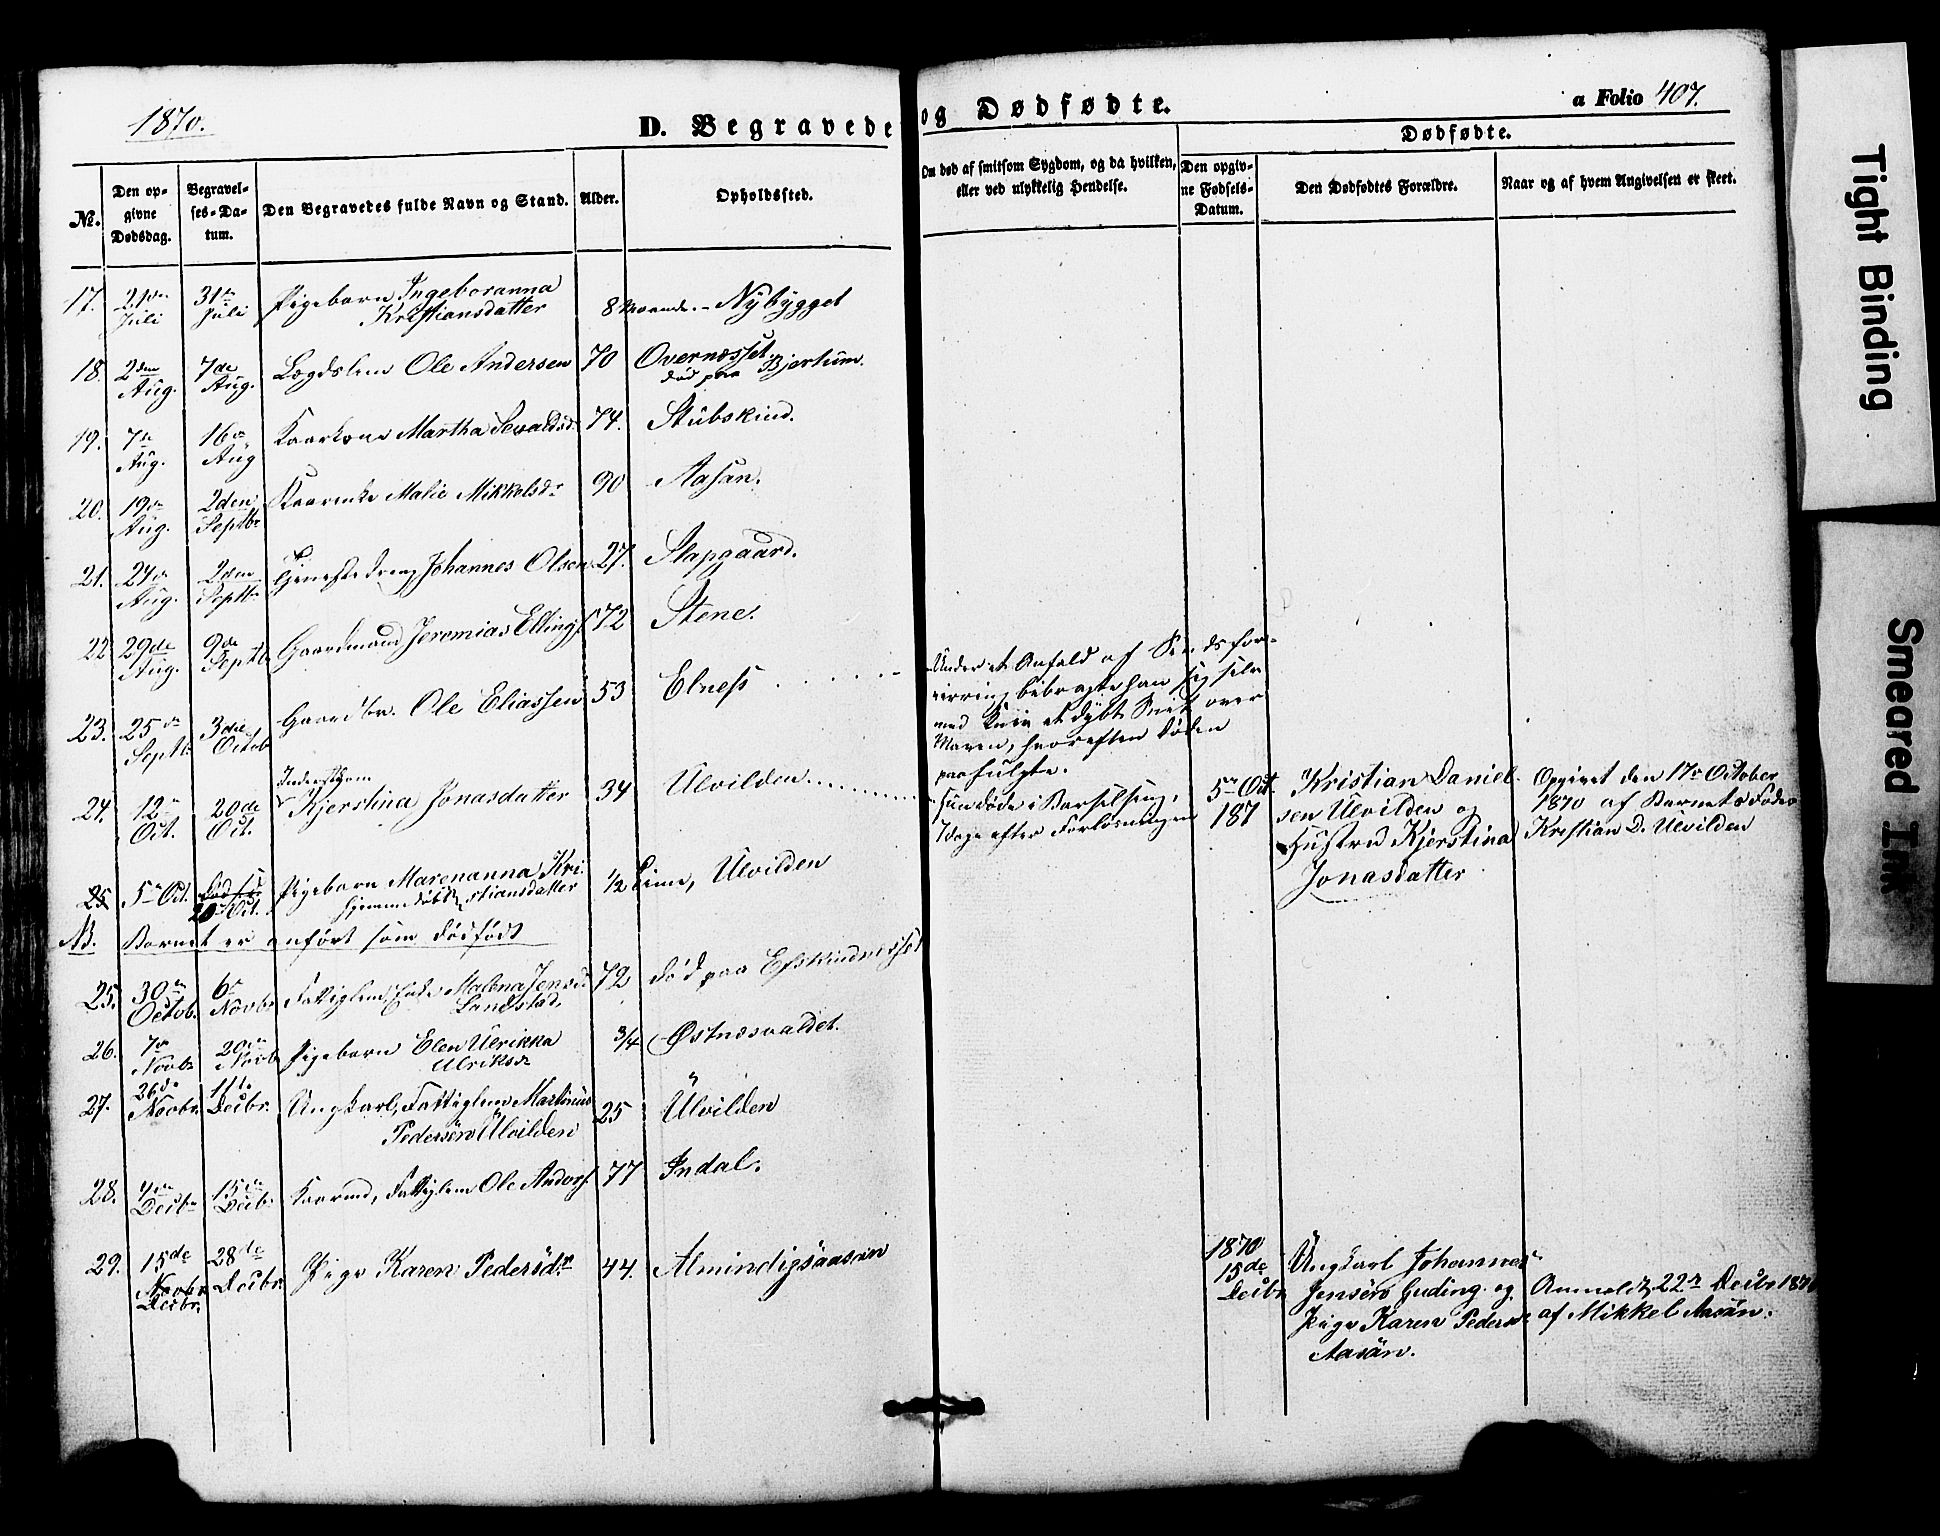 1870.
D. Begravede og Dødfødte.
a Folio 407.
Dødfødte.
No.
Den opgivne Dødsdag.
Begravelses-Datum.
Den Begravedes fulde Navn og Stand.
Alder.
Opholdssted.
Om død af smitsom Sygdom, og da hvilken,
eller ved ulykkelig Hendelse.
Den opgivne Fødsels-Datum.
Den Dødfødtes Forældre.
Naar og af hvem Angivelsen er skeet.
17. 21de Juli 31te Juli Pigebarn Ingeboranna
Kristiansdatter 8 Maaneder - Nybygget
18. 2den Aug. 7de Aug. Lægdslem Ole Andersen 70 Overnesset.
død paa Bjertum.
19. 7de Aug. 16de Aug Kaarkone Martha Sevaldsd. 74. Stubskind.
20. 19de Aug. 2den Septbr Kaarenke Malie Mikkelsdr 90 Aasan.
21. 24de Aug. 2den Septbr Tjenestedreng Johannes Olsen 27. Slapgaard.
22 29de Aug. 9de Septbr Gaardmand Jeremias Ellings 72 Stene.
23. 25de Septbr 3die Octob Gaardbr. Ole Eliassen 53 Elness
Under et Anfald af Sindsfor-
virring bibragte han sig selv
med Kniv et dybt Snit over
Maven, hvorefter Døden
paafulgte.
24. 12te Oct. 20de Oct. Inderst
Kjerstina Jonasdatter 34 Ulvilden
Hun døde i Barselseng,
7 dage efter Forløsningen
5te Oct. 187
Kristian Daniel-
sen Ulvilden og
Hustru Kjerstina
Jonasdatter
Opgivet den 17de October
1870 af Barnets Fader
Kristian D. Ulvilden
25 5te Oct. 20 Oct. Pigebarn Marenanna Kri-
hjemmedøbt stiansdatter 1/2 Time, Ulvilden
NB. Barnet er anført som dødfødt
25. 30te Octob. 6te Novbr Fattiglem, Enke Malena Jensd.
Landstad, 72 død paa Esskindnesset
26. 7de Novbr 20de Novbr Pigebarn Elen Ulrikka
Ulriksdr 3/4 Østnesvaldet.
27. 26de Novbr. 11te Decbr. Ungkarl, Fattiglem Martinus
Pedersen Ulvilden 25 Ulvilden
28. 4de Decbr 15de Decbr Kaarmd, Fattiglem Ole Anders 77 Indal.
29. 15de Novbr Decbr. 28de Decbr. Pige Karen Pedersdr. 44. Almindigsaasen
1870
15de
Decbr
Ungkarl Johannes
Jensen Guding og
Pige Karen Pedersdr
Aasan.
Anmeldt 22de Decbr 1870
af Mikkel Aasan.
Tight Binding
Smeared Ink